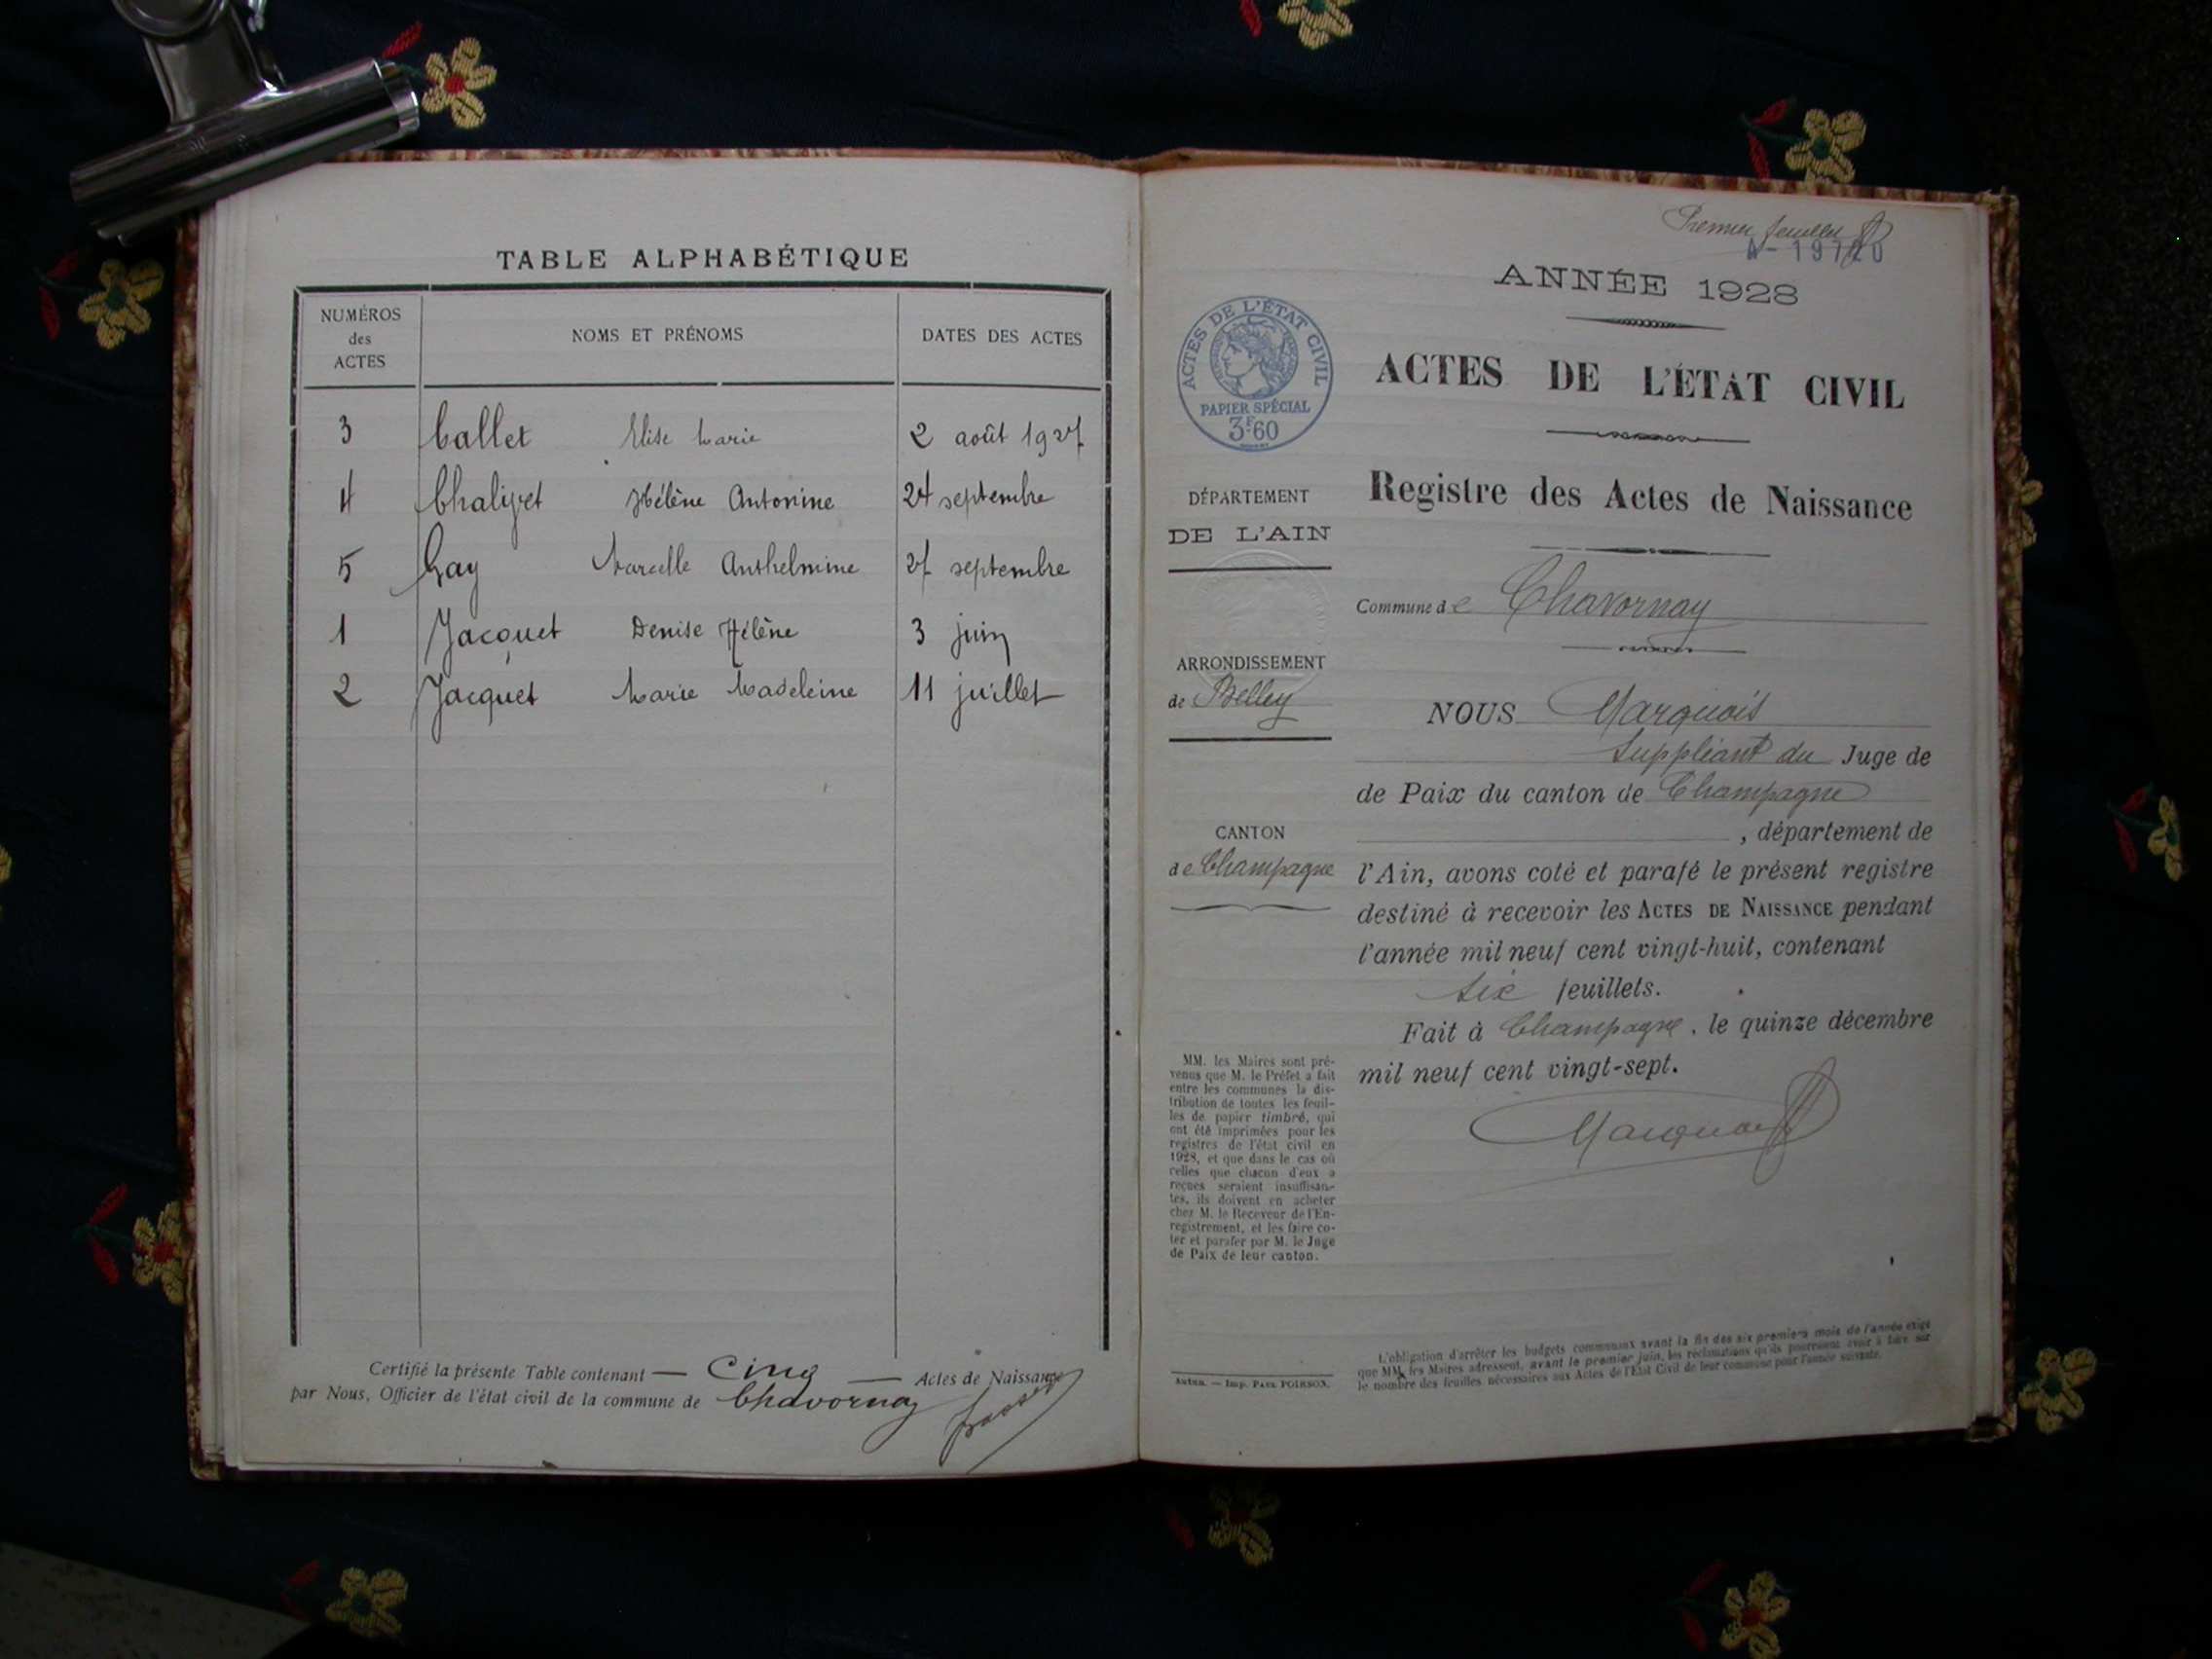 TABLE ALPHABÉTIQUE
NUMÉROS des ACTES
NOMS ET PRÉNOMS
DATES DES ACTES
3 Callet Elise Marie 2 août 1927
4 Chalijet Hélène Antonine 24 septembre
5 Gay Marcelle Anthelmine 27 septembre
1 Jacquet Denise Hélène 3 juin
2 Jacquet Marie Madeleine 11 juillet
Certifié la présente Table contenant — Cinq — Actes de Naissance
par Nous, Officier de l'état civil de la commune de Chavornay
Premier feuillet
ANNÉE 1928
ACTES DE L'ÉTAT CIVIL
PAPIER SPÉCIAL
3F60
ACTES DE L'ÉTAT CIVIL
Registre des Actes de Naissance
DÉPARTEMENT
DE L'AIN
Commune de Chavornay
ARRONDISSEMENT
de Belley
NOUS Marquois
Suppléant du Juge de
de Paix du canton de Champagne
, département de
CANTON
de Champagne
l'Ain, avons coté et parafé le présent registre
destiné à recevoir les ACTES DE NAISSANCE pendant
l'année mil neuf cent vingt-huit, contenant
six feuillets.
Fait à Champagne, le quinze décembre
mil neuf cent vingt-sept.
Marquois
MM. les Maires sont pré-
venus que M. le Préfet a fait
entre les communes la dis-
tribution de toutes les feuil-
les de papier timbré, qui
ont été imprimées pour les
registres de l'état civil en
1928, et que dans le cas où
celles que chacun d'eux a
reçues seraient insuffisan-
tes, ils doivent en acheter
chez M. le Receveur de l'En-
registrement, et les faire co-
ter et parafer par M. le Juge
de Paix de leur canton.
Autun. — Imp. PAUL POIRSON.
L'obligation d'arrêter les budgets communaux avant la fin des six premiers mois de l'année exige
que MM. les Maires adressent, avant le premier juin, les réclamations qu'ils pourraient avoir à faire sur
le nombre des feuilles nécessaires aux Actes de l'État Civil de leur commune pour l'année suivante.